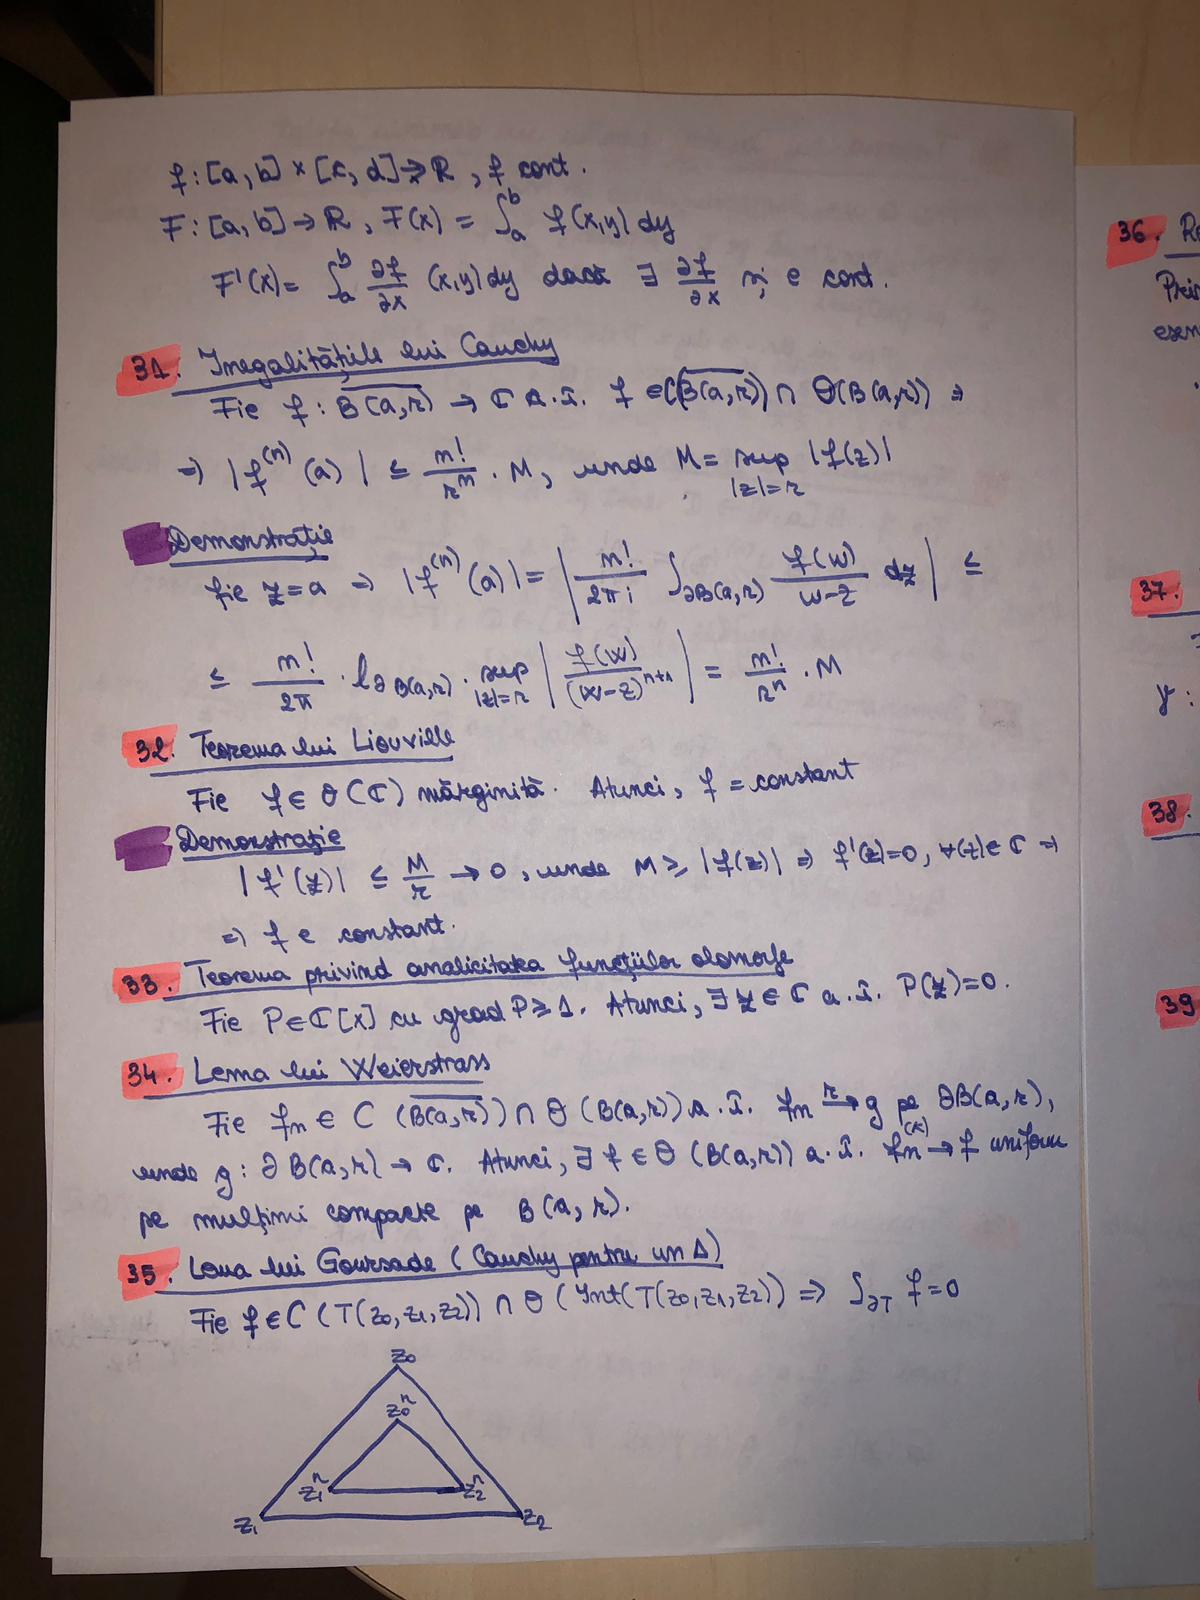 f : [a, b] × [c, d] → R, f cont.
F : [a, b] → R, F(x) = ∫_a^b f(x,y) dy
F'(x) = ∫_a^b ∂f/∂x (x,y) dy dacă ∃ ∂f/∂x și e cont.
31. Inegalitățile lui Cauchy
Fie f : \overline{B(a,r)} → C a.î. f ∈ C(\overline{B(a,r)}) ∩ O(B(a,r)) ⇒
⇒ |f^{(n)}(a)| ≤ n!/r^n · M, unde M = sup_{|z|=r} |f(z)|
Demonstrație
fie z=a ⇒ |f^{(n)}(a)| = | n!/2πi ∫_{∂B(a,r)} f(w)/(w-z) dz | ≤
≤ n!/2π · l_{∂B(a,r)} · sup_{|z|=r} | f(w)/(w-z)^{n+1} | = n!/r^n · M
32. Teorema lui Liouville
Fie f ∈ O(C) mărginită. Atunci, f = constant
Demonstrație
|f'(z)| ≤ M/r → 0, unde M ≥ |f(z)| ⇒ f'(z)=0, ∀(z)∈ C ⇒
⇒ f e constant.
33. Teorema privind analicitatea funcțiilor olomorfe
Fie P∈C[x] cu grad P≥1. Atunci, ∃ z ∈ C a.î. P(z)=0.
34. Lema lui Weierstrass
Fie f_n ∈ C (\overline{B(a,r)}) ∩ O (B(a,r)) a.î. f_n → g pe ∂B(a,r),
unde g : ∂B(a,r) → C. Atunci, ∃ f ∈ O (B(a,r)) a.î. f_n^{(k)} → f uniform
pe mulțimi compacte pe B(a,r).
35. Lema lui Goursade (Cauchy pentru un Δ)
Fie f ∈ C (T(z0,z1,z2)) ∩ O (Int(T(z0,z1,z2)) ⇒ ∫_{∂T} f = 0
z0
z0^n
z1^n z2^n
z1 z2
36. Re
Prin
37.
γ :
38.
39